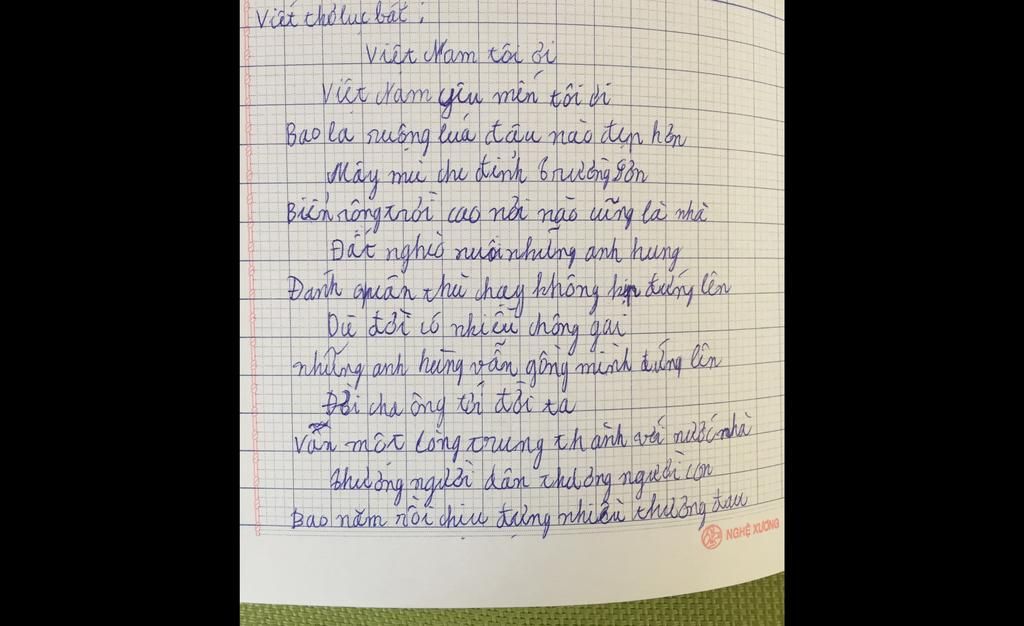 Viết thơ lục bát :
Việt Nam tôi ơi
Việt Nam yêu mến tôi ơi
Bao la ruộng luá đâu nào đẹp hơn
Mây mù che đỉnh trường sơn
Biển rộng trời cao nơi nào cũng là nhà
Đất nghèo nuôi những anh hung
Đanh quân thù chạy không kịp đứng lên
Dù đời có nhiều chông gai
những anh hùng vẫn gồng mình đứng lên
Đời cha ông tới đời ta
Vẫn một lòng trung thành với nước nhà
thương người dân thương người con
Bao năm rồi chịu đựng nhiều thương đau
NGHỆ XƯƠNG